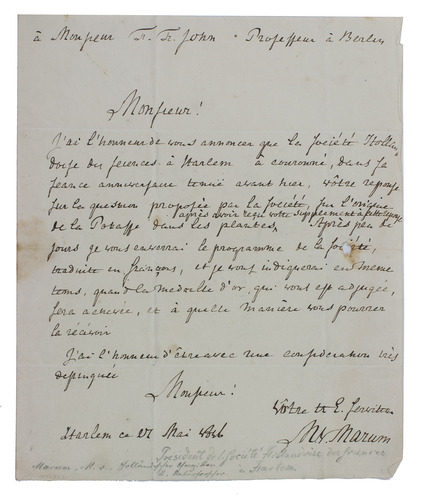 à Monsieur Fr. Fr. John Professeur à Berlin
Monsieur!
J'ai l'honneur de vous annoncer que la Société Hollan
doise des sciences à Harlem à couronné, dans sa
seance anniversaire tenuë avant hier, vôtre reponse
sur la question proposée par la Société, sur l'origine
après avoir reçu votre supplement à cette reponse
de la Potasse dans les plantes. Après peu de
jours je vous enverrai le programme de la Société,
traduite en françois, et je vous indiquerai en meme
tems, quand la medaille d'or, qui vous est adjugée,
sera achevée, et à quelle maniere vous pourrez
la recevoir
J'ai l'honneur d'être avec une consideration très
distinguée
Monsieur!
Vôtre tr. E. serviteur
Harlem ce 27 Mai
MvMarum
President de la Société
à Harlem
Marum